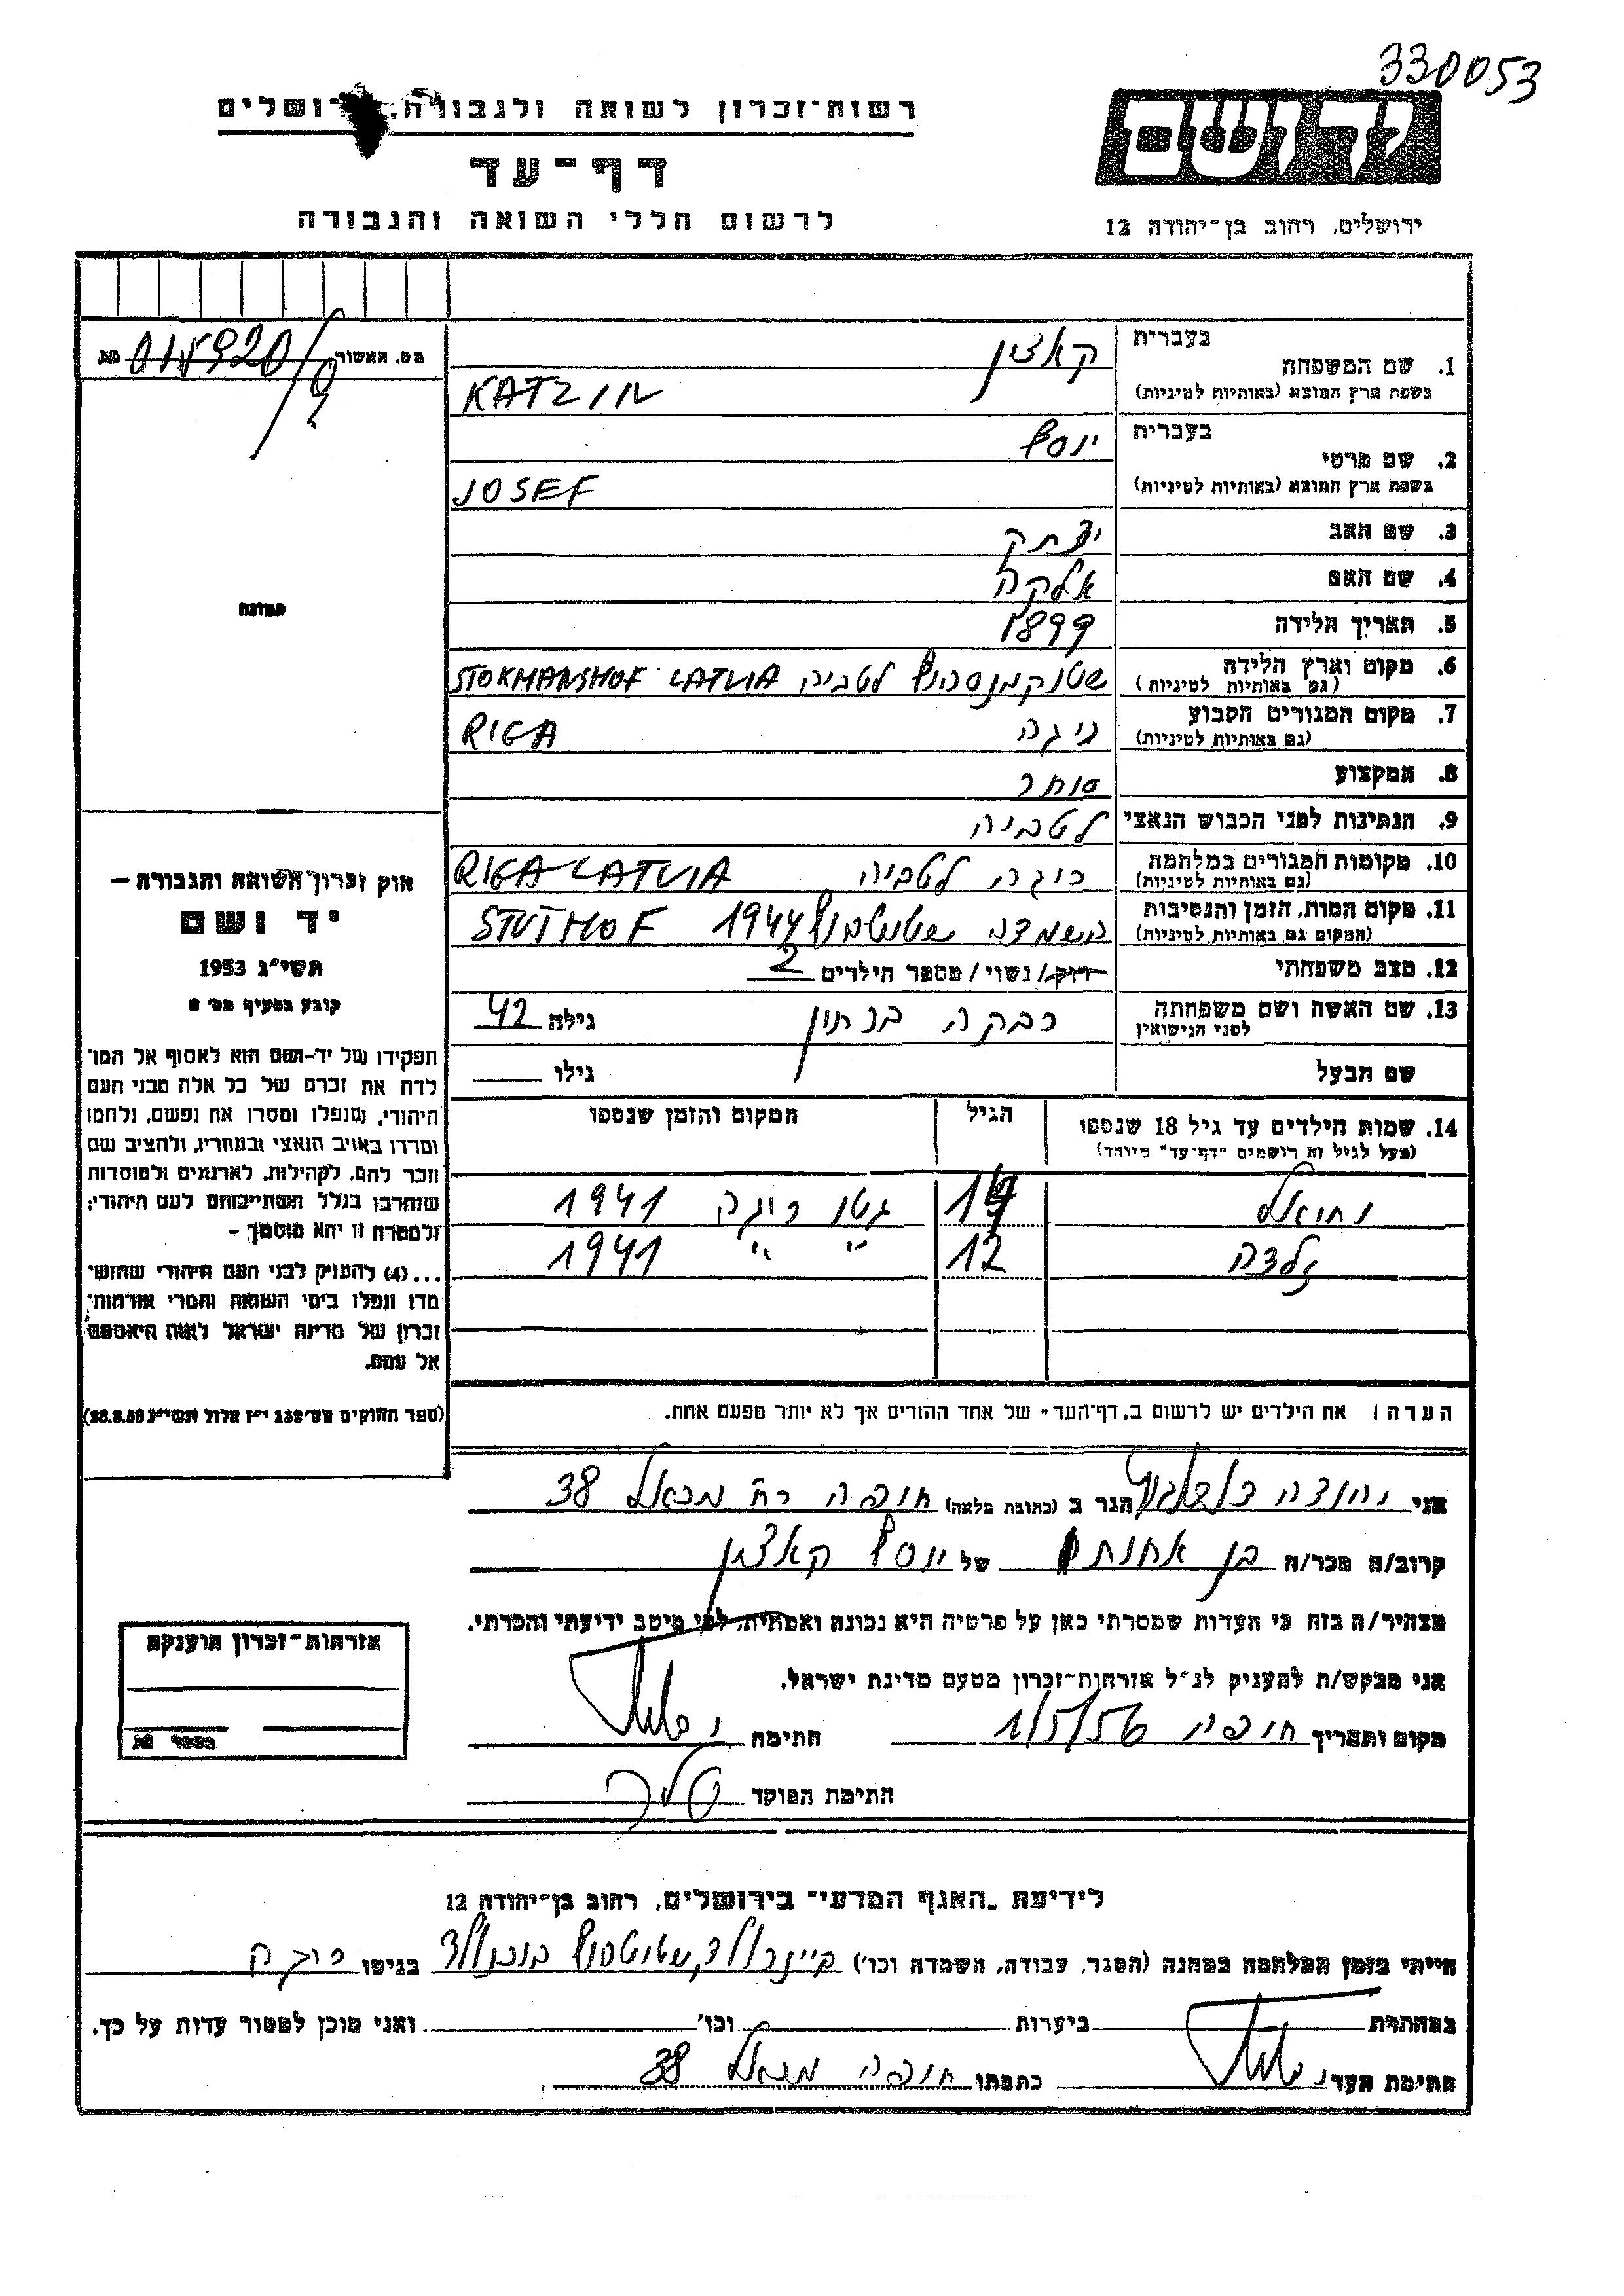 330053
יד ושם
ירושלים, רחוב בן־יהודה 12
רשות־זכרון לשואה ולגבורה, ירושלים
דף־עד
לרשום חללי השואה והגבורה
מס. האשור 
1. שם המשפחה בעברית קאצין
בשפת ארץ המוצא (באותיות לטיניות) KATZIN
2. שם פרטי בעברית יוסף
בשפת ארץ המוצא (באותיות לטיניות) JOSEF
3. שם האב יצחק
4. שם האם אלקה
5. תאריך הלידה 1899
6. מקום וארץ הלידה שטוקמנסהוף לטביה STOKMANSHOF LATVIA
(גם באותיות לטיניות)
7. מקום המגורים הקבוע ריגה RIGA
(גם באותיות לטיניות)
8. המקצוע סוחר
9. הנתינות לפני הכבוש הנאצי לטביה
10. מקומות המגורים במלחמה ריגה לטביה RIGA LATVIA
(גם באותיות לטיניות)
11. מקום המות, הזמן והנסיבות השמדה שטוטהוף 1944 STUTHOF
(המקום גם באותיות לטיניות)
12. מצב משפחתי רווק/נשוי/מספר הילדים 2
13. שם האשה ושם משפחתה רבקה גילה 42
לפני הנישואין
שם הבעל גילו
14. שמות הילדים עד גיל 18 שנספו הגיל המקום והזמן שנספו
(מעל לגיל זה רושמים "דף־עד" מיוחד)
יחואל גטו ריגה 1941
זלדה 12 " " 1941
הערה: את הילדים יש לרשום ב"דף־העד" של אחד ההורים אך לא יותר מפעם אחת.
תמונה
חוק זכרון השואה והגבורה —
יד ושם
תשי"ג 1953
קובע בסעיף מס' 2
תפקידו של יד־ושם הוא לאסוף אל המו
לדת את זכרם של כל אלה מבני העם
היהודי, שנפלו ומסרו את נפשם, נלחמו
ומרדו באויב הנאצי ובעוזריו, ולהציב שם
וזכר להם, לקהילות, לארגונים ולמוסדות
שנחרבו בגלל השתייכותם לעם היהודי;
ולמטרה זו יהא מוסמך —
...(4) להעניק לבני העם היהודי שהוש־
מדו ונפלו בימי השואה והמרי אזרחות־
זכרון של מדינת ישראל לאות היאספם
אל עמם.
(ספר החוקים מס' 132 י"ז אלול תשי"ג 28.8.53)
אני יהודה הגר ב (כתובת מלאה) חיפה רח' מיכאל 38
קרוב/ה מכר/ה בן אחות של יוסף קאצין
מצהיר/ה בזה כי העדות שמסרתי כאן על פרטיה היא נכונה ואמתית, לפי מיטב ידיעתי והכרתי.
אני מבקש/ת להעניק לנ"ל אזרחות־זכרון מטעם מדינת ישראל.
מקום ותאריך חיפה 1/5/56 חתימה
חתימת הפוקד
אזרחות־זכרון הוענקה
לידיעת "האגף המדעי" בירושלים, רחוב בן־יהודה 12
הייתי בזמן המלחמה במחנה (הסגר, עבודה, השמדה וכו') קייזרולד, שטוטהוף בוכנולד בגיטו ריגה
במחתרת ביערות וכו' ואני מוכן למסור עדות על כך.
חתימת העד כתבתו חיפה מיכאל 38